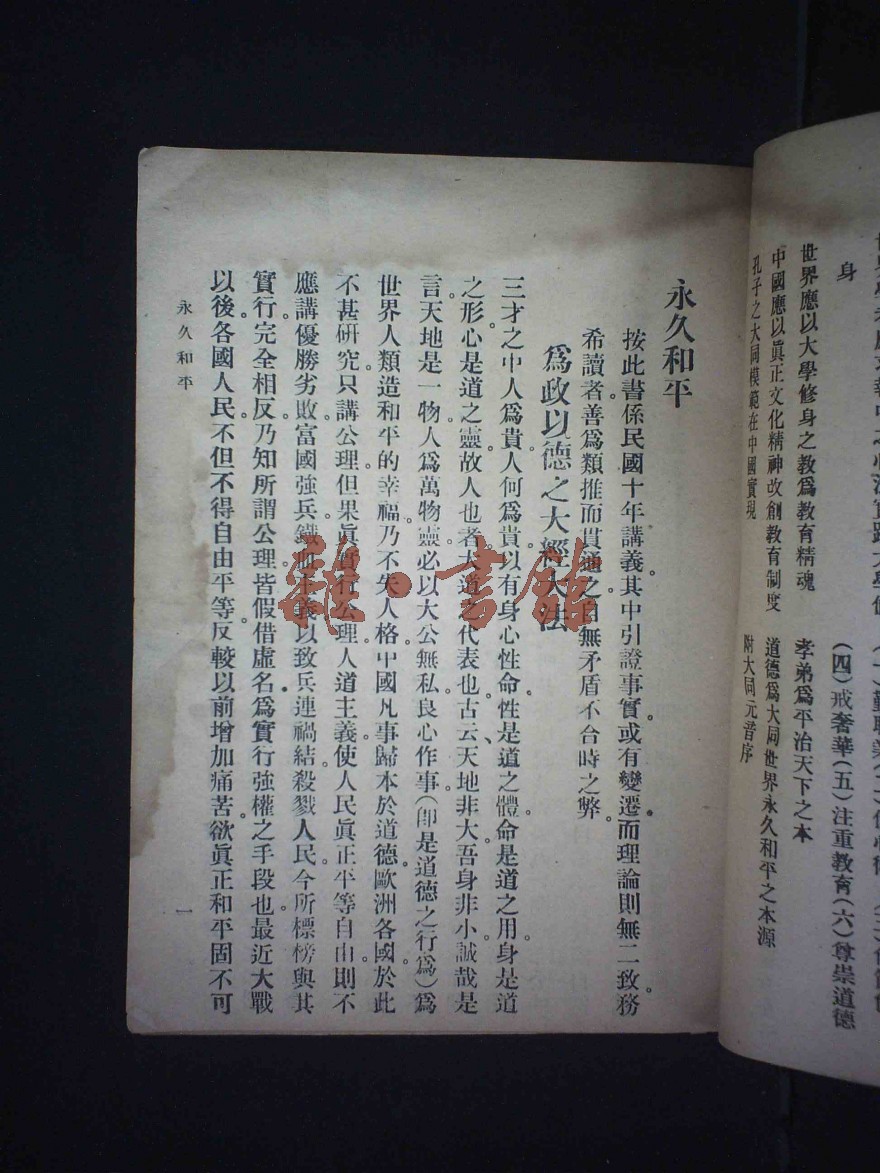 身
世界應以大學修身之教爲教育精魂
中國應以眞正文化精神改創教育制度
孔子之大同模範在中國實現
(四)戒奢華(五)注重教育(六)尊崇道德
孝弟爲平治天下之本
道德爲大同世界永久和平之本源
附大同元音序
永久和平
按此書係民國十年講義。其中引證事實。或有變遷。而理論則無二致。務
希讀者善爲類推而貫通之。自無矛盾不合時之弊。
爲政以德之大經大法
三才之中人爲貴。人何爲貴。以有身心性命。性是道之體。命是道之用。身是道
之形。心是道之靈。故人也者。大道之代表也。古云、天地非大。吾身非小。誠哉是
言。天地是一物。人爲萬物靈。必以大公無私良心作事(卽是道德之行爲)爲
世界人類造和平的幸福。乃不失人格。中國凡事歸本於道德。歐洲各國。於此
不甚研究。只講公理。但果眞實行公理人道主義。使人民眞正平等自由。則不
應講優勝劣敗。富國強兵。鐵血主義。以致兵連禍結。殺戮人民。今所標榜。與其
實行。完全相反。乃知所謂公理。皆假借虛名。爲實行強權之手段也。最近大戰
以後。各國人民。不但不得自由平等。反較以前增加痛苦。欲眞正和平。固不可
永久和平
一
雜·書館